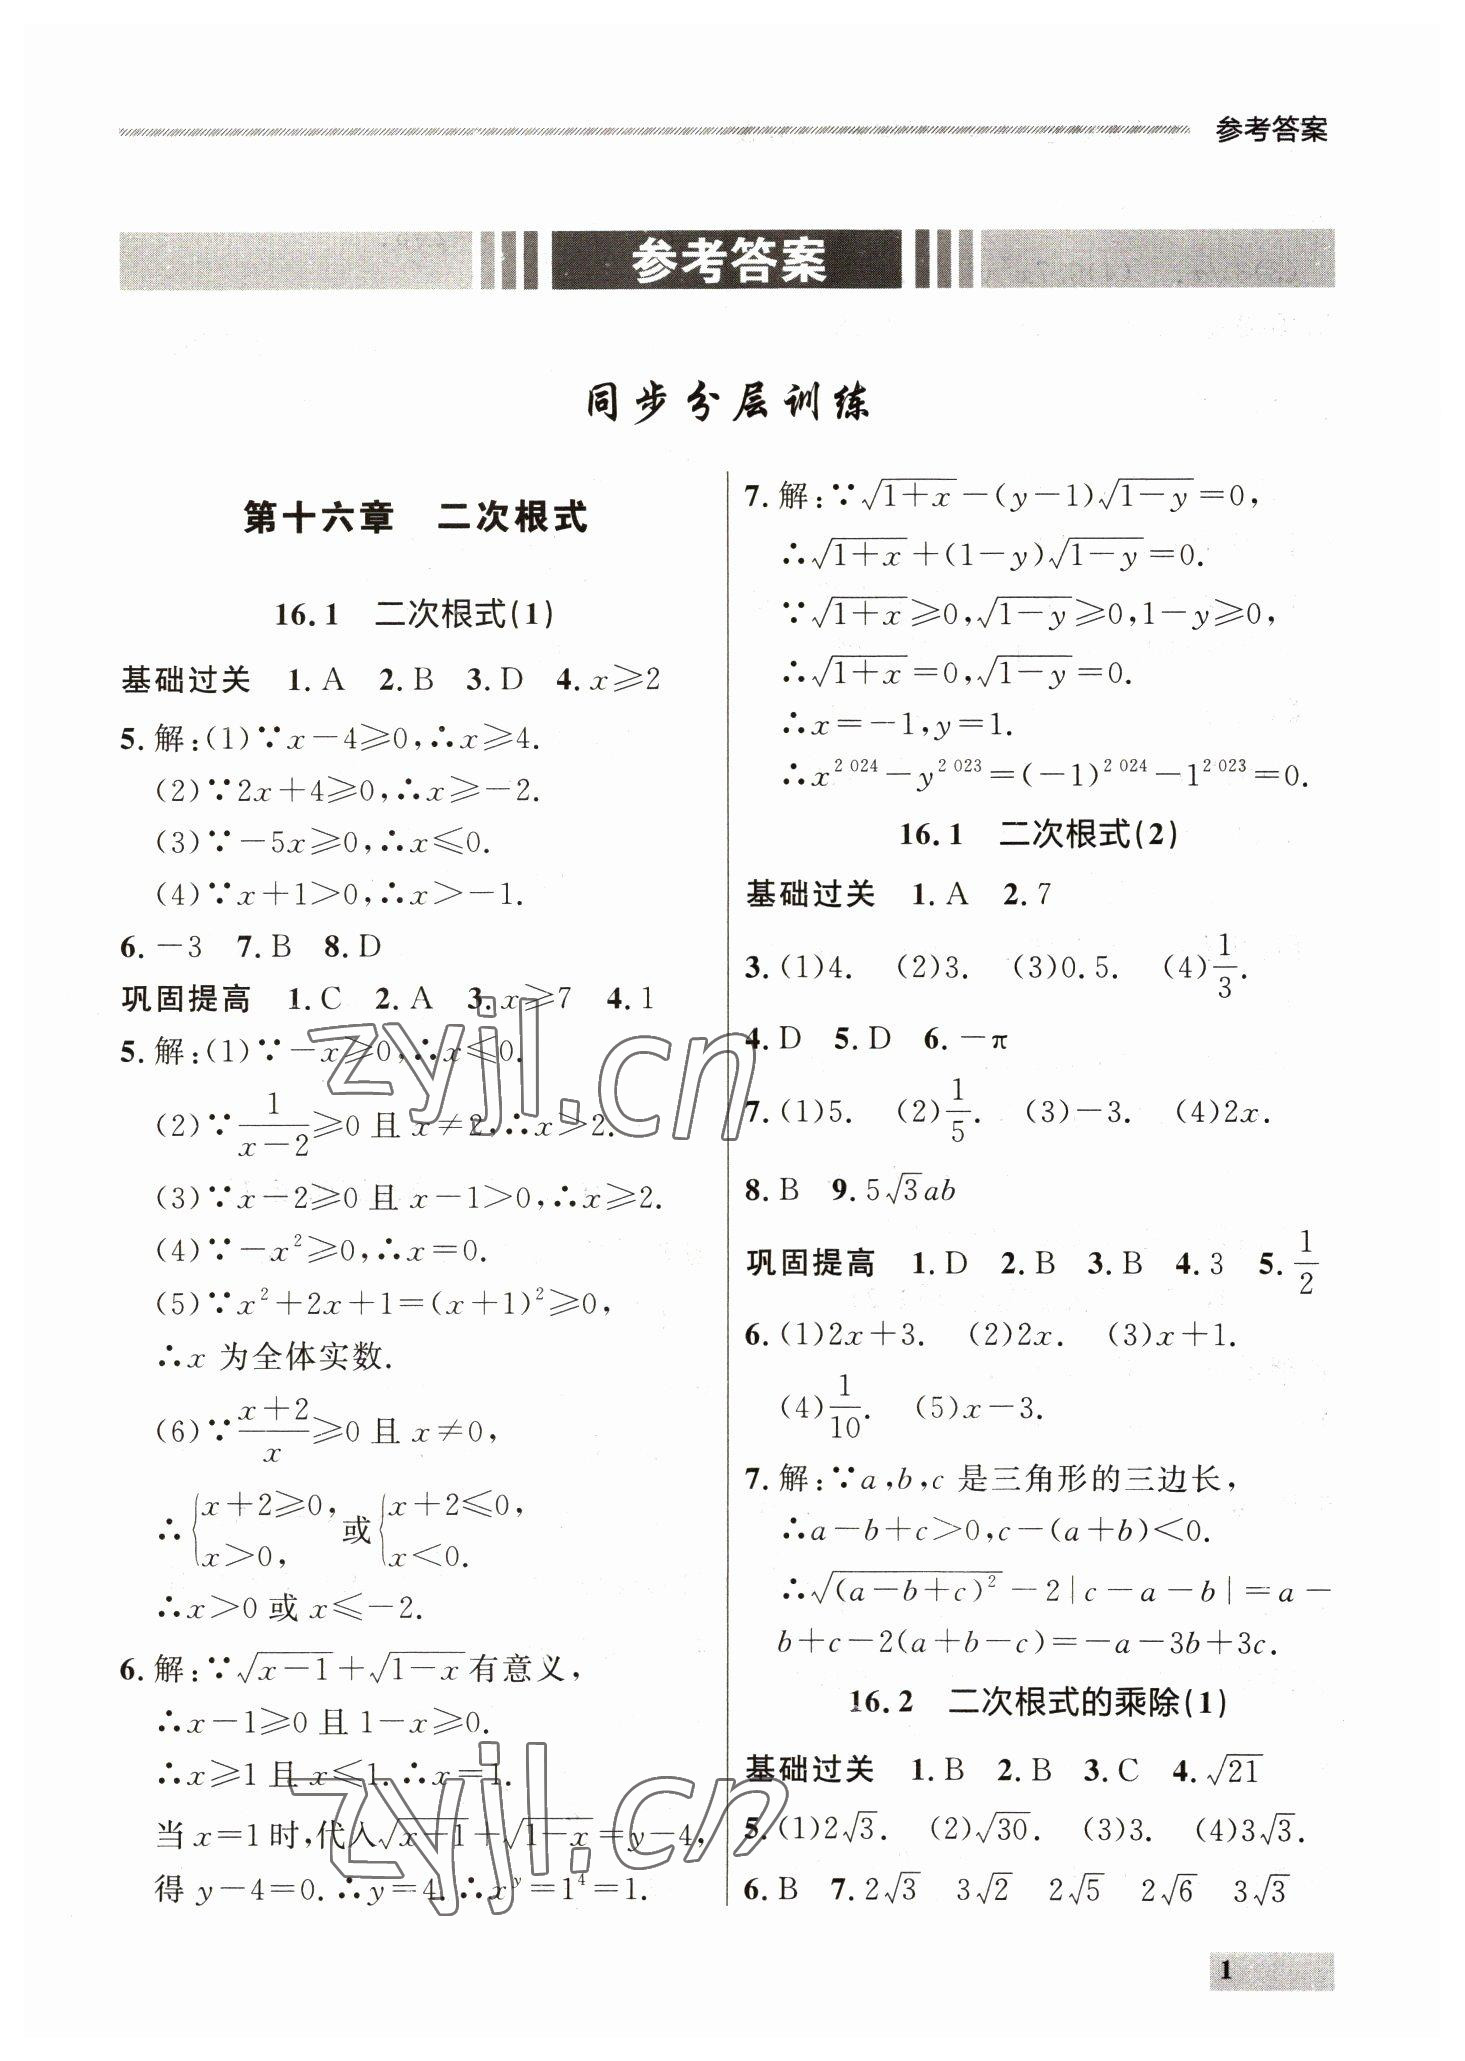 参考答案
参考答案
同步分层训练
第十六章　二次根式
16.1　二次根式(1)
基础过关　1. A　2. B　3. D　4. x≥2
5. 解:(1)∵x-4≥0,∴x≥4.
(2)∵2x+4≥0,∴x≥-2.
(3)∵-5x≥0,∴x≤0.
(4)∵x+1>0,∴x>-1.
6. -3　7. B　8. D
巩固提高　1. C　2. A　3. x≥7　4. 1
5. 解:(1)∵-x≥0,∴x≤0.
(2)∵1/(x-2)≥0 且 x≠2,∴x>2.
(3)∵x-2≥0 且 x-1>0,∴x≥2.
(4)∵-x²≥0,∴x=0.
(5)∵x²+2x+1=(x+1)²≥0,
∴x 为全体实数.
(6)∵(x+2)/x≥0 且 x≠0,
∴{x+2≥0, x>0, 或{x+2≤0, x<0.
∴x>0 或 x≤-2.
6. 解:∵√(x-1)+√(1-x)有意义,
∴x-1≥0 且 1-x≥0.
∴x≥1 且 x≤1.∴x=1.
当 x=1 时,代入√(x+1)+√(1-x)=y-4,
得 y-4=0.∴y=4.∴x^y=1⁴=1.
7. 解:∵√(1+x)-(y-1)√(1-y)=0,
∴√(1+x)+(1-y)√(1-y)=0.
∵√(1+x)≥0,√(1-y)≥0,1-y≥0,
∴√(1+x)=0,√(1-y)=0.
∴x=-1,y=1.
∴x^2 024-y^2 023=(-1)^2 024-1^2 023=0.
16.1　二次根式(2)
基础过关　1. A　2. 7
3. (1)4.　(2)3.　(3)0.5.　(4)1/3.
4. D　5. D　6. -π
7. (1)5.　(2)1/5.　(3)-3.　(4)2x.
8. B　9. 5√3ab
巩固提高　1. D　2. B　3. B　4. 3　5. 1/2
6. (1)2x+3.　(2)2x.　(3)x+1.
(4)1/10.　(5)x-3.
7. 解:∵a,b,c 是三角形的三边长,
∴a-b+c>0,c-(a+b)<0.
∴√((a-b+c)²)-2|c-a-b|=a-
b+c-2(a+b-c)=-a-3b+3c.
16.2　二次根式的乘除(1)
基础过关　1. B　2. B　3. C　4. √21
5. (1)2√3.　(2)√30.　(3)3.　(4)3√3.
6. B　7. 2√3　3√2　2√5　2√6　3√3
1
zyjl.cn
zyjl.cn